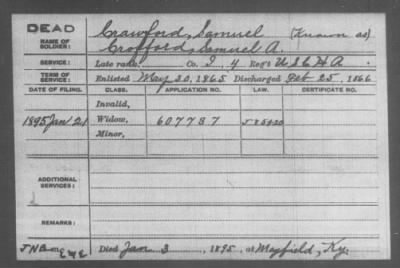 DEAD
NAME OF SOLDIER:
Crawford, Samuel (Known as)
Crofford, Samuel A.
SERVICE: Late rank, Co. I, 4 Reg't U S C H A.
TERM OF SERVICE: Enlisted May 30, 1865 Discharged Feb 25, 1866
DATE OF FILING. CLASS. APPLICATION NO. LAW. CERTIFICATE NO.
Invalid,
1895 Jan 21 Widow, 607787
Minor,
ADDITIONAL SERVICES:
REMARKS:
Died Jan 3, 1895, at Mayfield, Ky.